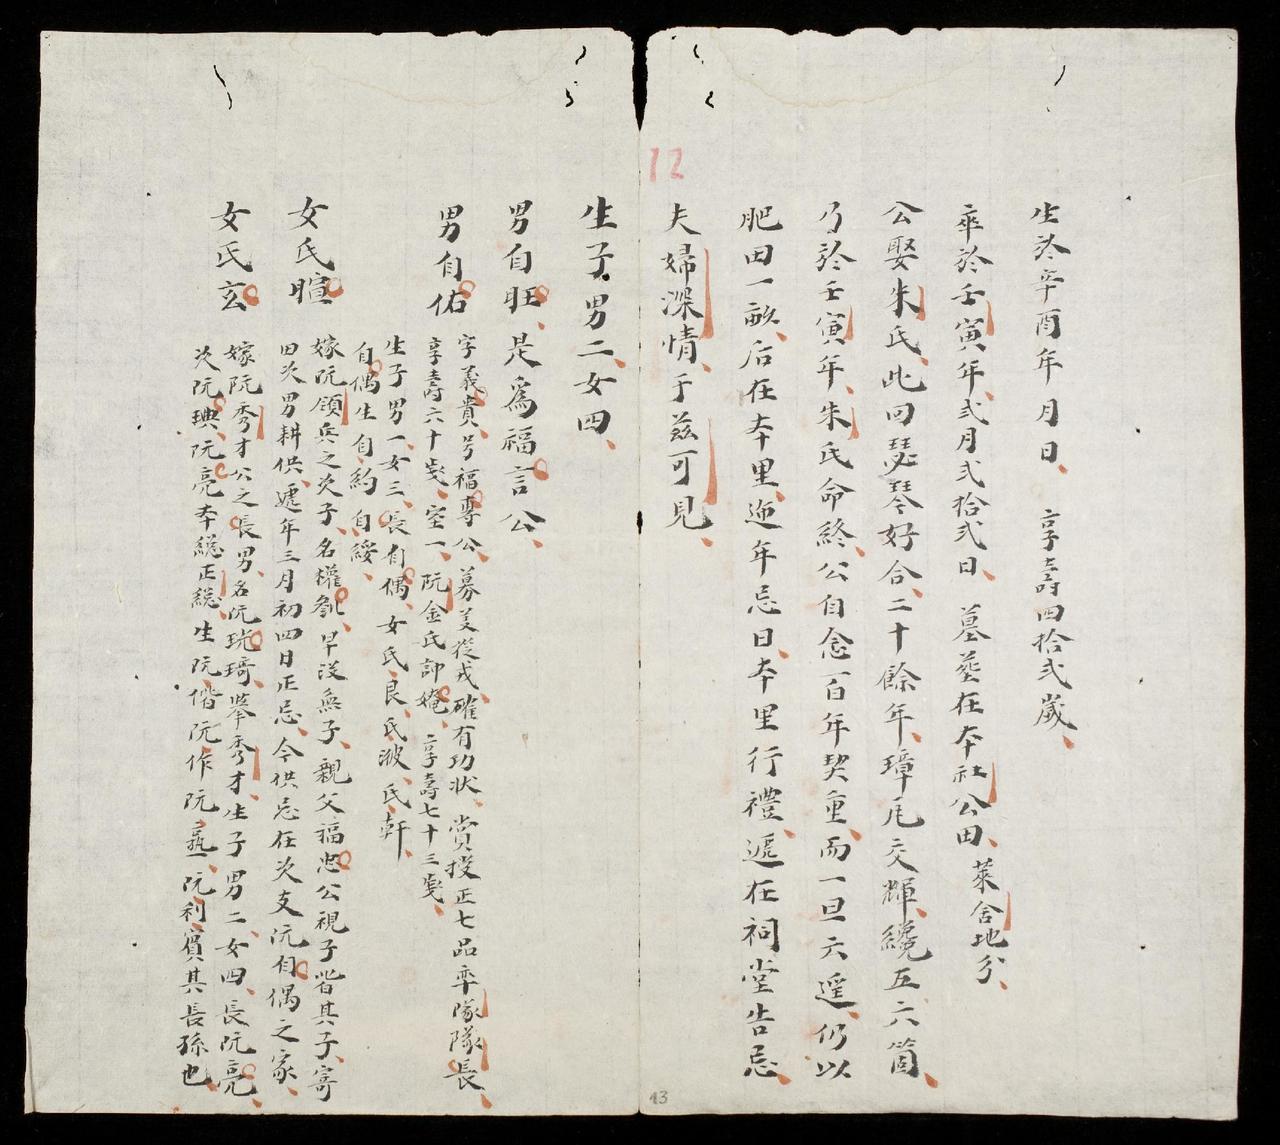 12
生於辛酉年月日 享壽四拾弍歲
卒於壬寅年弍月弍拾弍日 墓葬在本社公田萊舍地分
公娶朱氏此回瑟琴好合二十餘年璋瓦交輝纔五六箇
乃於壬寅年朱氏命終公自念百年契重而一旦云遥仍以
肥田一畝后在本里迩年忌日本里行禮遞在祠堂告忌
夫婦深情于兹可見
生子男二女四
男自旺是爲福言公
男自佑 字義貴号福專公募美從戎確有功状賞授正七品率隊隊長
享壽六十歲室一阮金氏 享壽七十三歲
生子男一女三長自偶女氏良氏波氏軒
自偶生自約自綏
女氏暄 嫁阮領兵之次子名權 早没無子親父福忠公視子壻其子寄
田次男耕供遞年三月初四日正忌今供忌在次支阮自偶之家
女氏玄 嫁阮秀才公之長男名阮珖琦舉秀才生子男二女四長阮亮
次阮琠阮亮本總正總生阮偕阮作阮藝阮利賓其長孫也
13